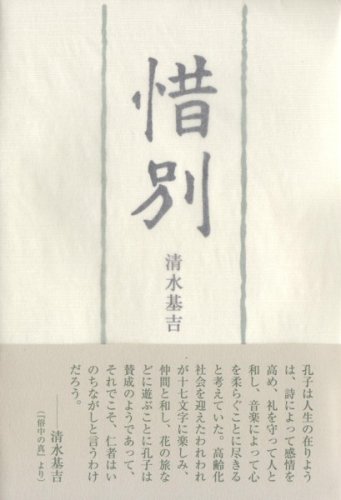 惜別
清水基吉
孔子は人生の在りよう
は、詩によって感情を
高め、礼を守って人と
和し、音楽によって心
を柔らぐことに尽きる
と考えていた。高齢化
社会を迎えたわれわれ
が十七文字に楽しみ、
仲間と和し、花の旅な
どに遊ぶことに孔子は
賛成のようであって、
それでこそ、仁者はい
のちながしと言うわけ
だろう。
清水基吉
(「俗中の真」より)